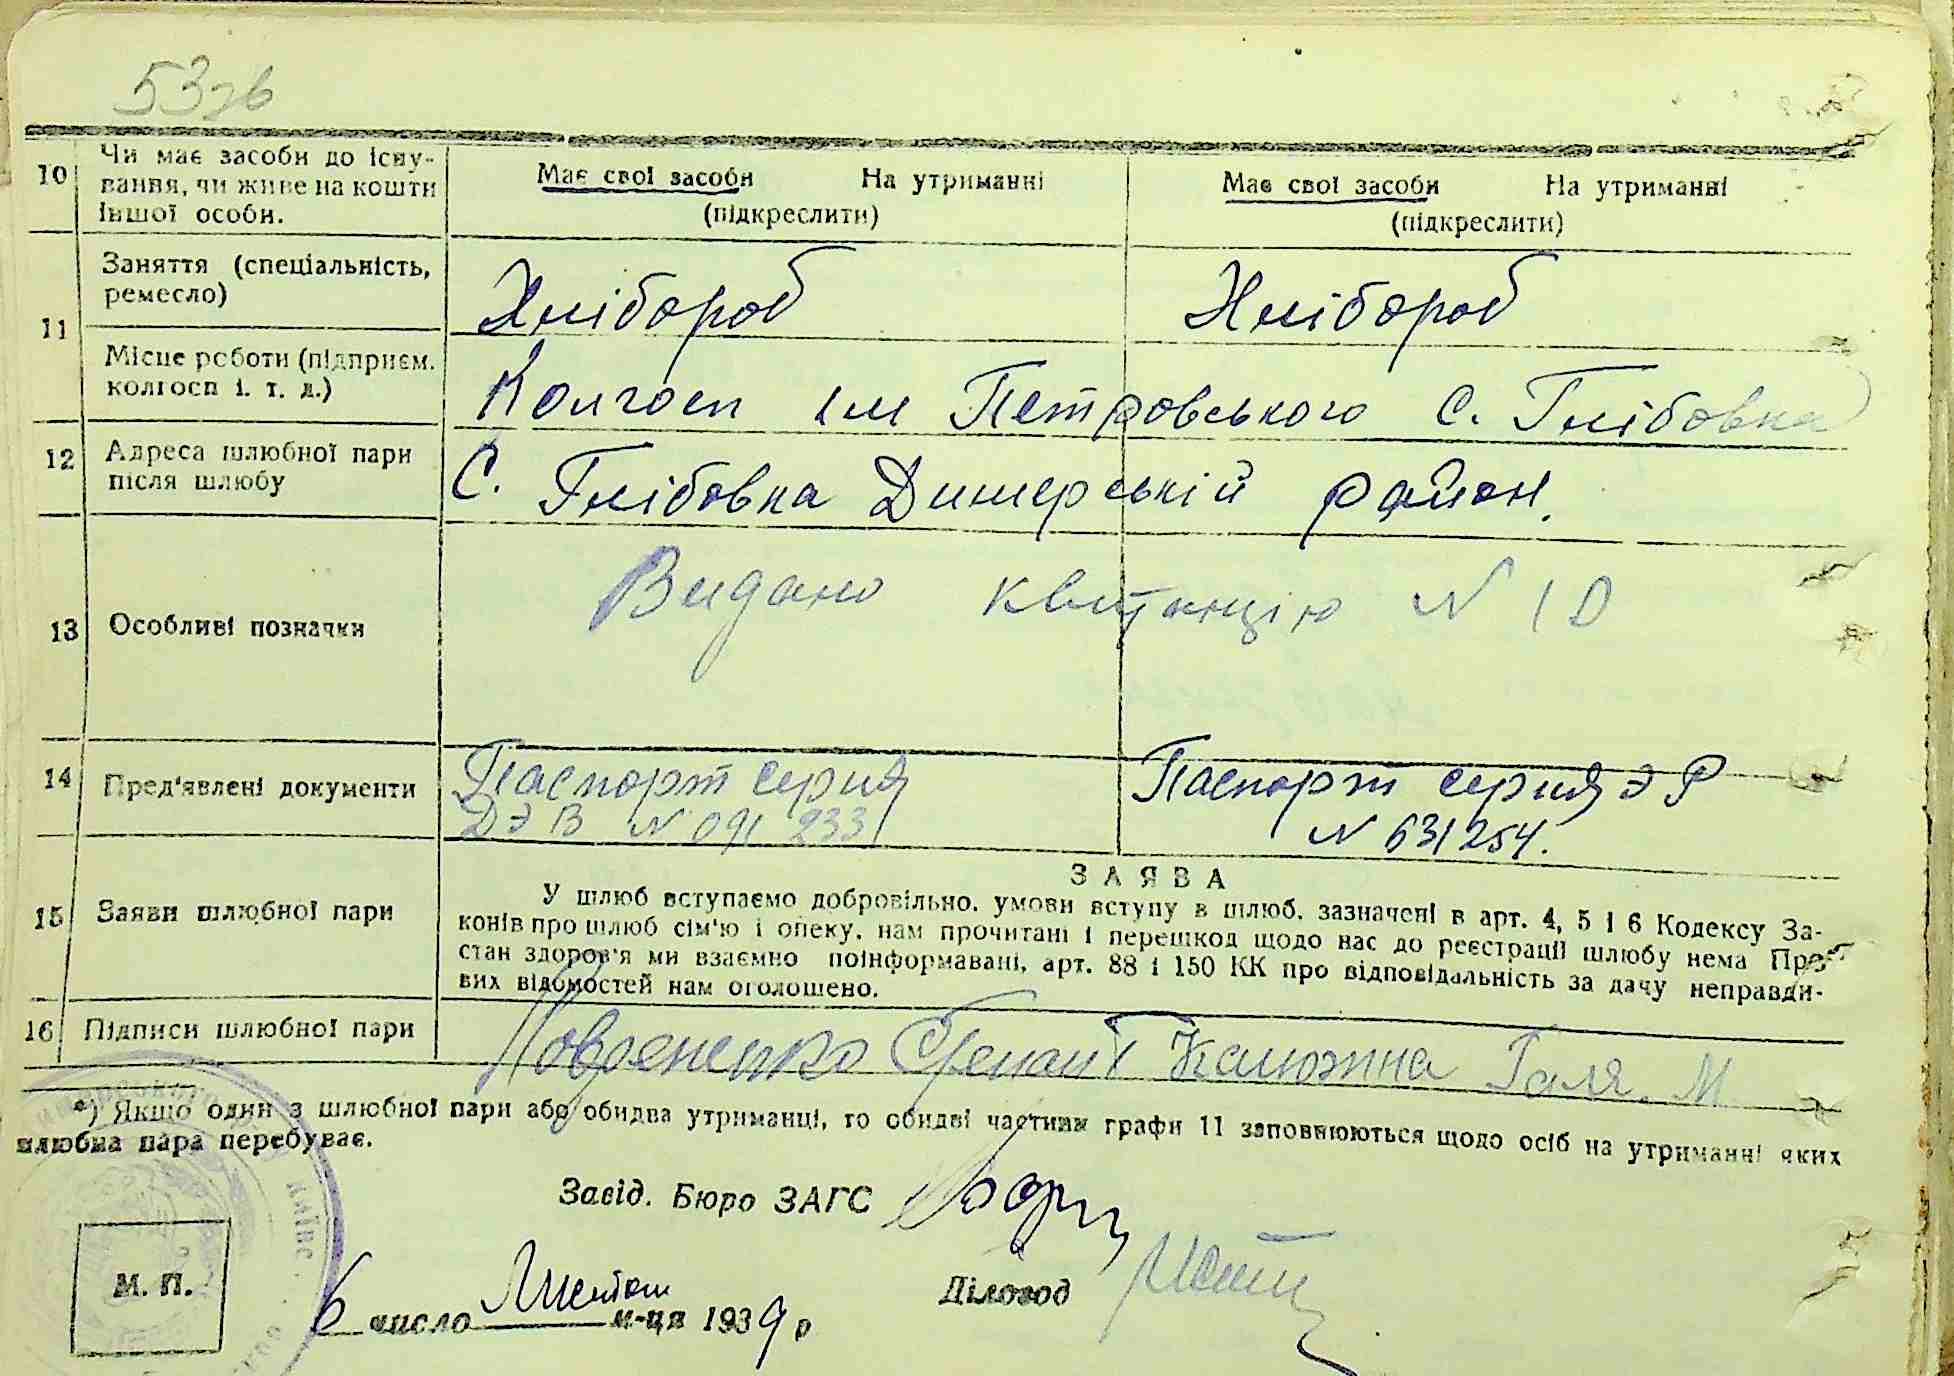 53зв
10 Чи має засоби до існу-
вання, чи живе на кошти
іншої особи.
Має свої засоби На утриманні
(підкреслити)
Має свої засоби На утриманні
(підкреслити)
11 Заняття (спеціальність,
ремесло)
Хлібороб
Хлібороб
Місце роботи (підприєм.
колгосп і. т. д.)
Колгосп ім Петровського с. Глібовка
12 Адреса шлюбної пари
після шлюбу
С. Глібовка Димерській район.
13 Особливі позначки
Видано квитанцію N 10
14 Пред'явлені документи
Паспорт серия
ДЭВ N 091 233
Паспорт серия ЭР
N 631254.
15 Заяви шлюбної пари
ЗАЯВА
У шлюб вступаємо добровільно. умови вступу в шлюб, зазначені в арт. 4, 5 і 6 Кодексу За-
конів про шлюб сім'ю і опеку, нам прочитані і перешкод щодо нас до реєстрації шлюбу нема Про
стан здоров'я ми взаємно поінформавані, арт. 88 і 150 КК про відповідальність за дачу неправди-
вих відомостей нам оголошено.
16 Підписи шлюбної пари
Степан Калюжна Галя. М
*) Якщо один з шлюбної пари або обидва утриманці, то обидві частини графи 11 заповнюються щодо осіб на утриманні яких
шлюбна пара перебуває.
Завід. Бюро ЗАГС
М. П.
6 число м-ця 1939 р
Діловод